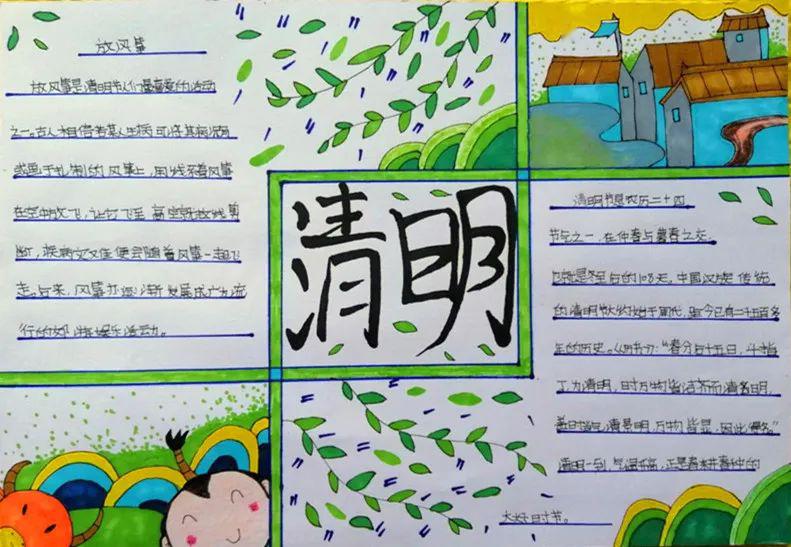 放风筝
放风筝是清明节人们最喜爱的活动
之一。古人相信若某人生病可将其病况写
或画于扎制的风筝上，用线系着风筝
在空中放飞，让它飞至高空就故线剪
断，疾病灾难便会随着风筝一起飞
走。后来，风筝亦逐渐发展成广为流
行的郊游娱乐活动。
清明
清明节是农历二十四
节气之一，在仲春与暮春之交，
也就是冬至后的108天。中国汉族传统
的清明节大约始于周代，距今已有二千五百多
年的历史。《历书》："春分后十五日，斗指
丁，为清明，时万物皆洁齐而清明，
盖时当气清景明，万物皆显，因此得名"
清明一到，气温升高，正是春耕春种的
大好时节。